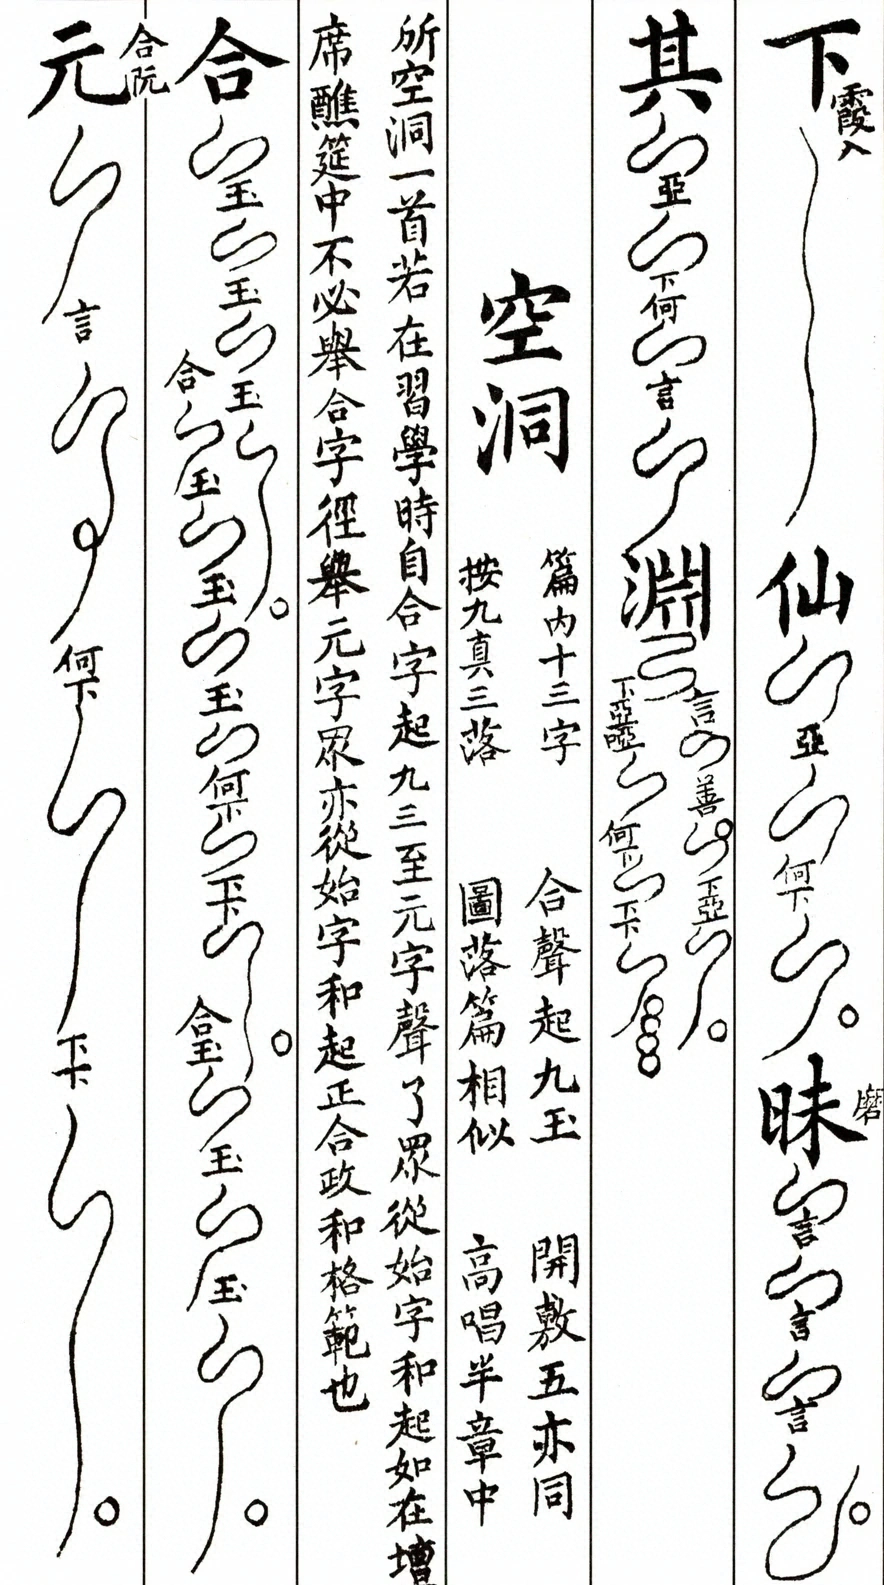 下霞入仙亞何下昧磨言言言
其亞下何言淵言善下亞
下亞啞何下下
空洞
篇内十三字 合聲起九玉 開敷五亦同
按九真三落 圖落篇相似 高唱半章中
所空洞一首若在習學時自合字起九三至元字聲了眾從始字和起如在壇
席醮筵中不必舉合字徑舉元字眾亦從始字和起正合政和格範也
合玉玉玉
合玉玉玉何下下
合玉玉玉
元合阮言何下下